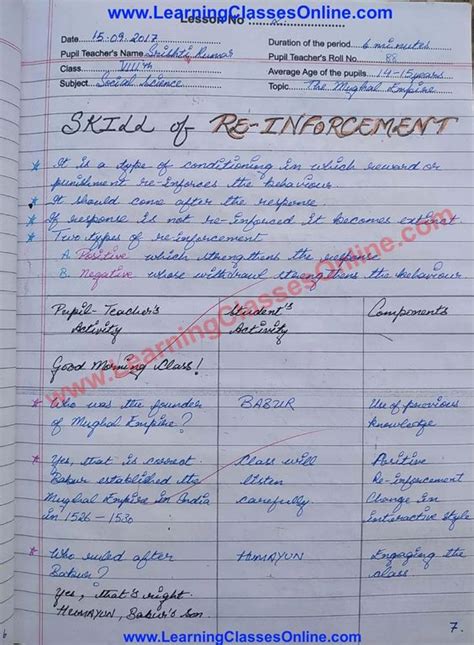 www.LearningClassesOnline.com
Lesson No
Date 15.09.2017 Duration of the period 6 minutes
Pupil Teacher's Name Srishti Kumar Pupil Teacher's Roll No 88
Class VIIIth Average Age of the pupils 14-15 years
Subject Social Science Topic The Mughal Empire
SKILL of RE-INFORCEMENT
* It is a type of conditioning in which reward or
punishment re-inforces the behaviour.
* It should come after the response.
* If response is not re-inforced it becomes extinct
* Two types of re-inforcement
A. Positive which strengthens the response
B. Negative whose withdrawal strengthens the behaviour.
www.LearningClassesOnline.com
Pupil-Teacher's Activity
Student's Activity
Components
Good Morning Class!
* Who was the founder
of Mughal Empire?
BABUR
Use of previous
knowledge
* Yes, that is correct
Babur established the
Mughal Empire in India
in 1526-1530
Class will
listen
carefully.
Positive
Re-inforcement
Change in
interactive style
* Who ruled after
Babur?
HUMAYUN
Engaging the
class.
Yes, that's right.
HUMAYUN, Babur's son
7.
www.LearningClassesOnline.com